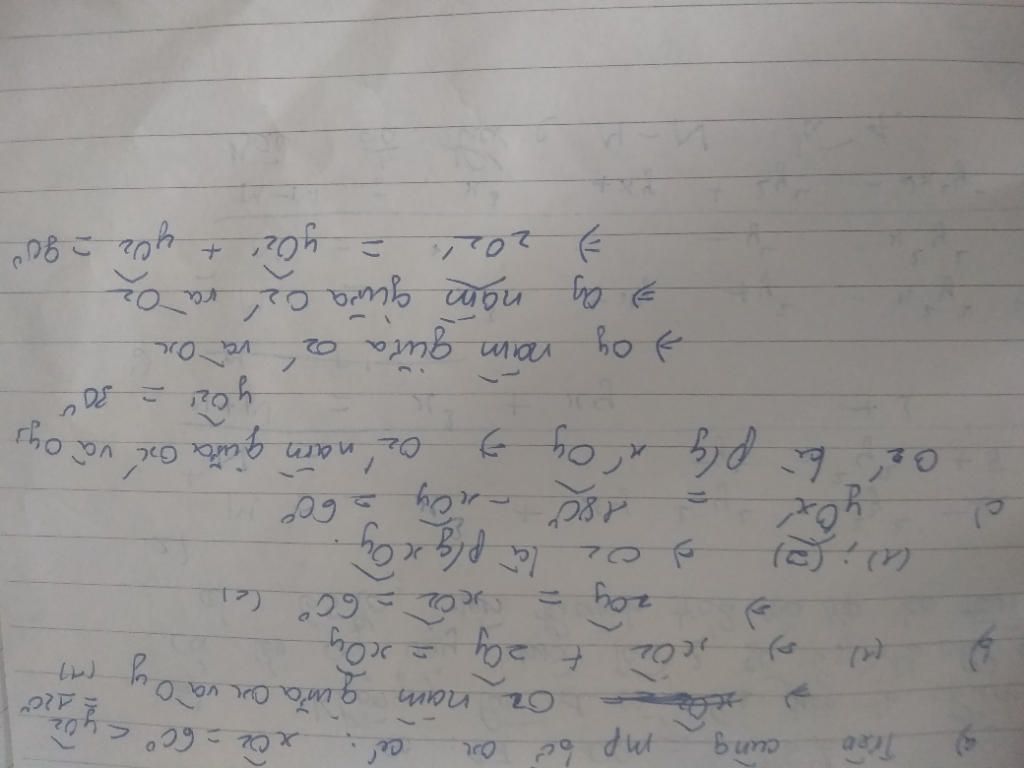 a) Trên cùng mp bờ Ox có: xOz = 60° < yOz = 120°
⇒ Oz nằm giữa Ox và Oy (1)
b) (1) ⇒ xOz + zOy = xOy
⇒ zOy = xOz = 60° (2)
(1); (2) ⇒ Oz là p/g xOy.
c) yOx' = 180° - xOy = 60°
Oz' là p/g x'Oy ⇒ Oz' nằm giữa Ox' và Oy,
yOz' = 30°
⇒ Oy nằm giữa Oz' và Ox
⇒ Oy nằm giữa Oz' và Oz
⇒ zOz' = yOz' + yOz = 90°